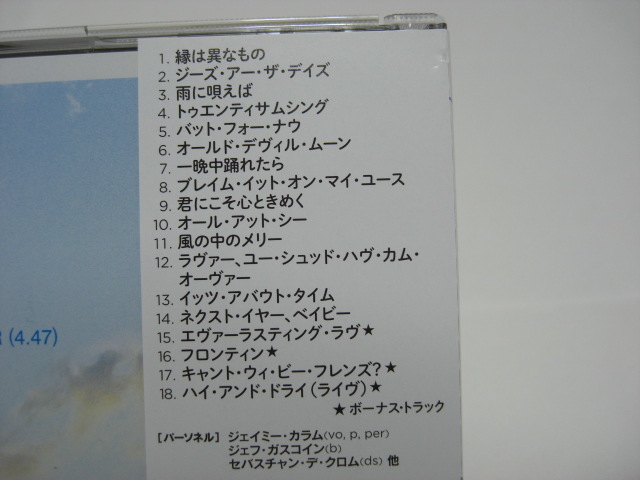 1. 縁は異なもの
2. ジーズ・アー・ザ・デイズ
3. 雨に唄えば
4. トゥエンティサムシング
5. バット・フォー・ナウ
6. オールド・デヴィル・ムーン
7. 一晩中踊れたら
8. ブレイム・イット・オン・マイ・ユース
9. 君にこそ心ときめく
10. オール・アット・シー
11. 風の中のメリー
12. ラヴァー、ユー・シュッド・ハヴ・カム・
オーヴァー
13. イッツ・アバウト・タイム
14. ネクスト・イヤー、ベイビー
15. エヴァーラスティング・ラヴ★
16. フロンティン★
17. キャント・ウィ・ビー・フレンズ?★
18. ハイ・アンド・ドライ(ライヴ)★
★ボーナス・トラック
(4.47)
[パーソネル] ジェイミー・カラム(vo, p, per)
ジェフ・ガスコイン(b)
セバスチャン・デ・クロム(ds) 他